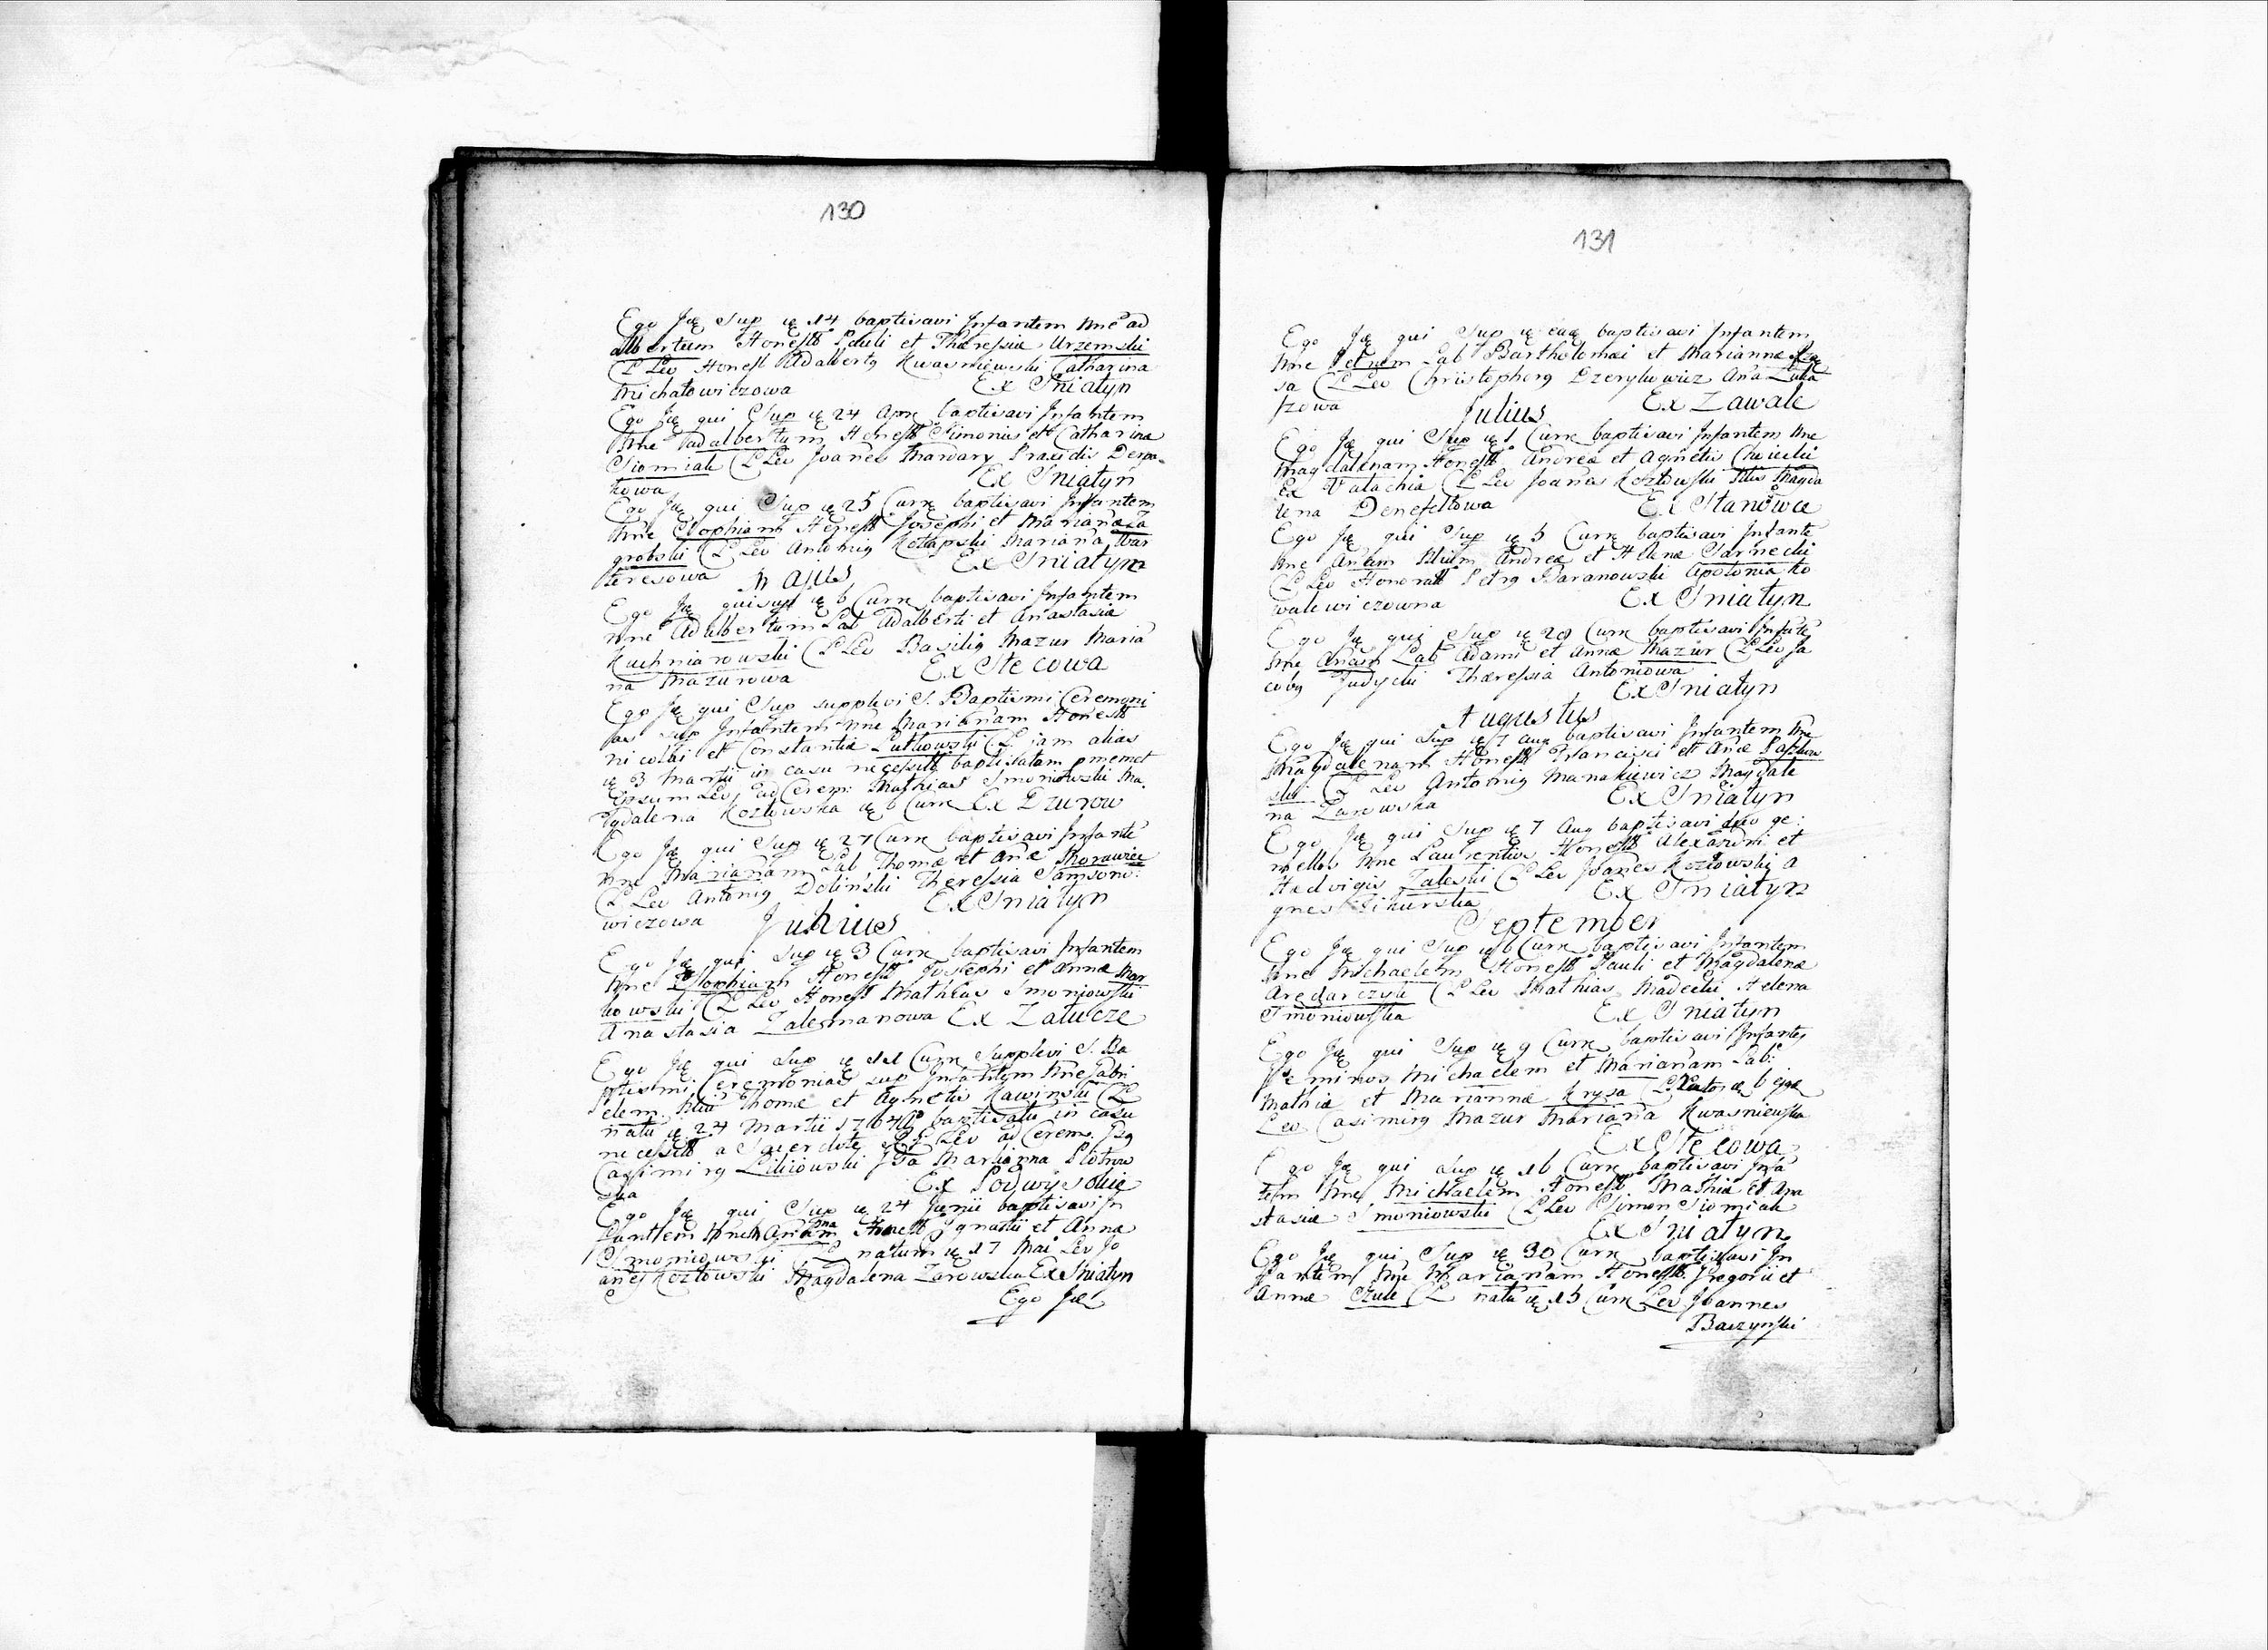 130
Ego Ję Sup ię 14 baptisavi Infantem Nne ad
albertum Honestt Pauli et Theressiæ Urzemski
CL Lev Honest Adalbertg Kwasniewski Catharina
Michałowiczowa Ex Sniatyn
Ego Ję qui Sup ię 24 Apre baptisavi Infantem
Nne adalbertum Honestt Simonis et Catharina
Siomiak CL Lev Joanes
kowa Ex Sniatyn
Ego Ję qui Sup ię 25 Curn baptisavi Infantem
Nne Zophiam Honestt Josephi et Marianæ Za
grobski CL Lev Antonig Mariana
teresowa Ex Sniatyn
Majus
Ego Ję qui sup ię 6 Curn baptisavi Infantem
Nne Adalbertum Lab Adalberti et Anastasia
Kuchniarowski CL Lev Basilig Mazur Maria
na Mazurowa Ex Stecowa
Ego Ję qui Sup supplevi S. Baptismi Ceremoni
as sup Infantem Nne Marianam Honestt
Nicolai et Constantiæ Lutkowski CL jam alias
ię 3 Martii in casu necessitt baptisatam pmemet
Ipsum Lev, ad Cerem: Mathias Smoniowski Ma
gdalena Kozłowska ię 6 Curn Ex Dzurow
Ego Ję qui Sup ię 27 Curn baptisavi Infante
Nne Marianam Lab Thomæ et Anæ Morawiec
CL Lev Antonig Dolinski Theressia Samsono:
wiczowa Ex Sniatyn
Junius
Ego Ję qui Sup ię 3 Curn baptisavi Infantem
Nne Zophiam Honestt Josephi et Annæ Mar
kowski CL Lev Honest Mathias Smoniowski
Anastasia Zalesmanowa Ex Załucze
Ego Ję qui Sup ię 11 Curn Supplevi S. Ba
ptismi Ceremonias sup Infantem Nne Gabri
elem Thomæ et Agnetis Kawinski CL
natū ię 24 Martii baptisatū in casu
necessitt a Sacerdote Lev ad Cerem.
Casimirg Marianna Piotrow
ska Ex Podwysokie
Ego Ję qui Sup ię 24 Junii baptisavi In
fantem Nne Annam Honestt Ignatii et Anna
Smoniowski CL natum ię 17 Mai Lev Jo
anes Kozłowski Magdalena Zarowska Ex Sniatyn
Ego Ję
131
Ego Ję qui Sup ię eaę baptisavi Infantem
Nne Petrum Lab Bartholomæi et Mariannæ
sa CL Lev Christophorg Dzerylowicz Ana Luka
szowa Ex Zawale
Julius
Ego Ję qui Sup ię 1 Curn baptisavi Infantem Nne
Magdalenam Honestt Andreæ et Agnetis
Ex Valachia CL Lev Joanes Kozłowski Magda
lena Denefeltowa Ex Stanowce
Ego Ję qui Sup ię 5 Curn baptisavi Infante
Nne Andreæ et Helenæ Sarnecki
CL Lev Honoratt Petrg Baranowski Apolonia Ko
walewiczowna Ex Sniatyn
Ego Ję qui Sup ię 20 Curn baptisavi Infāte
Nne Annam Lab Adami et Annæ Mazur CL Lev Ja
cobg Judycki Theressia Antoniowa
Ex Sniatyn
Augustus
Ego Ję qui Sup ię 7 Aug baptisavi Infantem Nne
Magdalenam Honestt Francisci et Anæ
ski CL Lev Antonig Manakiewicz Magdale
na Zarowska Ex Sniatyn
Ego Ję qui Sup ię 7 Aug baptisavi duo ge:
mellos Nne Laurentius Honestt Alexandri et
Hedvigis Zaleski CL Lev Joanes Kozłowski A
gnes Sikurska Ex Sniatyn
September
Ego Ję qui Sup ię 6 Curn baptisavi Infantem
Nne Michaelem Honestt Pauli et Magdalenæ
Aredarczyk CL Lev Mathias Madecki Helena
Smoniowska Ex Sniatyn
Ego Ję qui Sup ię 9 Curn baptisavi Infantes
Geminos Michaelem et Marianam Lab:
Mathiæ et Mariannæ Krysa
Lev Casimirg Mazur Mariana Kwasniewska
Ex Stecowa
Ego Ję qui Sup ię 16 Curn baptisavi Infā
tem Nne Michaelem Honestt Mathiæ et Ana
stasiæ Smoniowski CL Lev Simon Siomiak
Ex Sniatyn
Ego Ję qui Sup ię 30 Curn baptisavi In
fantem Nne Marianam Honestt. Gregorii et
Annæ CL natā ię 15 Curn Lev Joannes
Baczynski